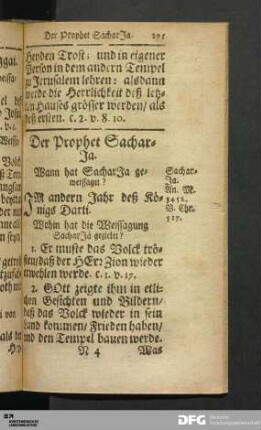 Der Prophet SacharJa. 295
Heyden Trost; und in eigener
Person in dem andern Tempel
zu Jerusalem lehren: alsdann
werde die Herrlichkeit deß letz-
ten Hauses grösser werden/ als
deß ersten. c. 2. v. 8. 10.
Der Prophet Sachar-
Ja.
Wann hat SacharJa ge-
weissagt?
IM andern Jahr deß Kö-
nigs Darii.
Sachar-
Ja.
An. M.
3452.
V. Chr.
517.
Wohin hat die Weissagung
SacharJä gezielt?
1. Er muste das Volck trö-
sten/ daß der HErr Zion wieder
erwehlen werde. c. 1. v. 17.
2. GOtt zeigte ihm in etli-
chen Gesichten und Bildern/
daß das Volck wieder in sein
Land kommen/ Frieden haben/
und den Tempel bauen werde.
N 4 Was
DFG